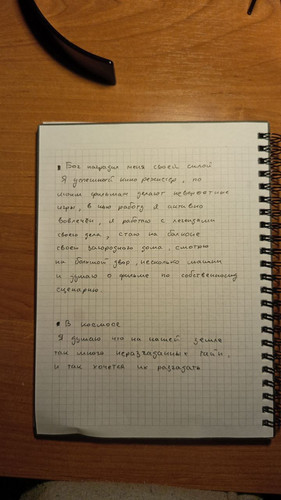 • Бог наградил меня своей силой
Я успешный кино режиссёр, по
моим фильмам делают невероятные
игры, в чью работу я активно
вовлечён, я работаю с легендами
своего дела, стою на балконе
своего загородного дома, смотрю
на большой двор, несколько машин
и думаю о фильме по собственному
сценарию.
• В космосе
Я думаю что на нашей земле
так много неразгаданных тайн,
и так хочется их разгадать